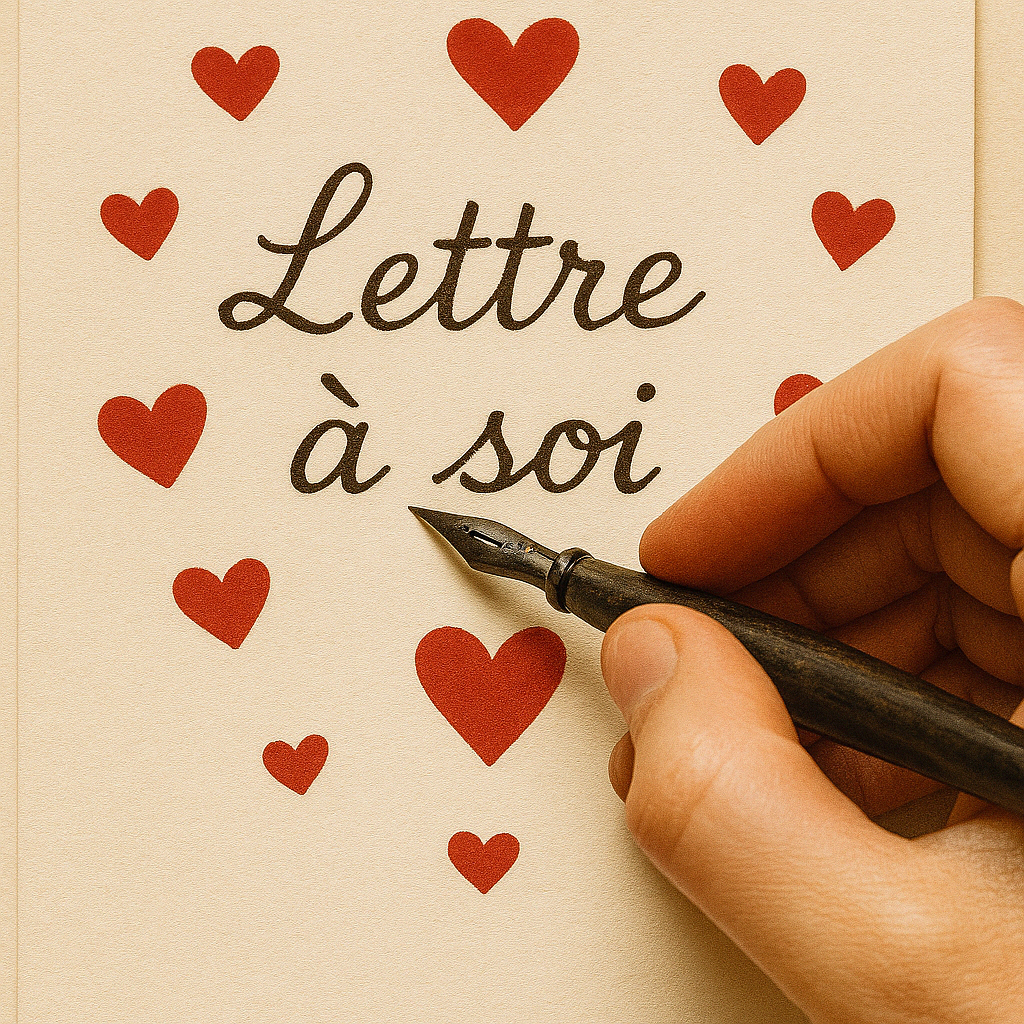 Lettre
à soi